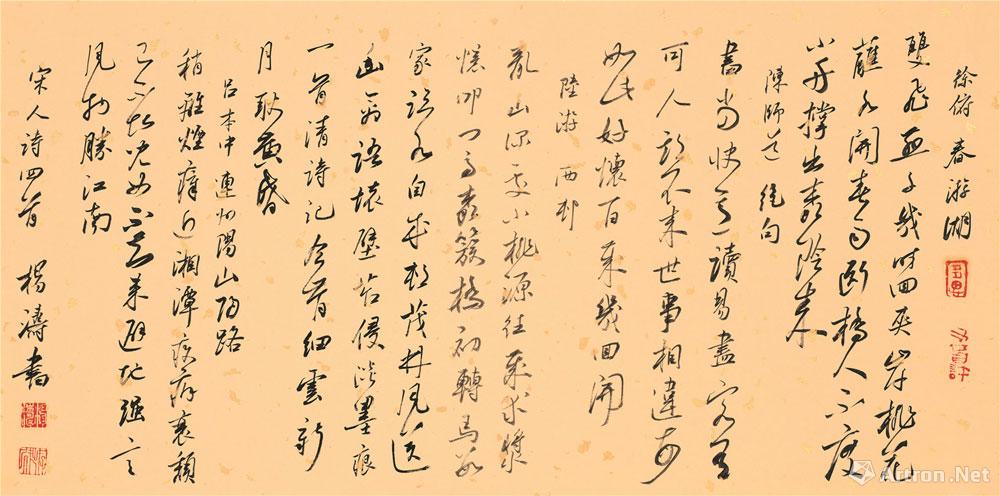 徐俯 春游湖
雙飛燕子幾時回夾岸桃花
蘸水開春雨斷橋人不度
小舟撐出柳陰來
陳師道 絕句
書當快意讀易盡客有
可人期不來世事相違每
如此好懷百歲幾回開
陸游 西邨
亂山深處小桃源往歲求漿
憶叩門高柳簇橋初轉馬數
家臨水自成邨茂林風送
幽禽語壞壁苔侵醉墨痕
一首清詩記今宵細雲新
月耿黃昏
呂本中 連州陽山歸路
稍離煙瘴近湘潭疾病衰頹
已不堪兒女不知來避地強言
風物勝江南
宋人詩四首 楊濤書
Artron.Net